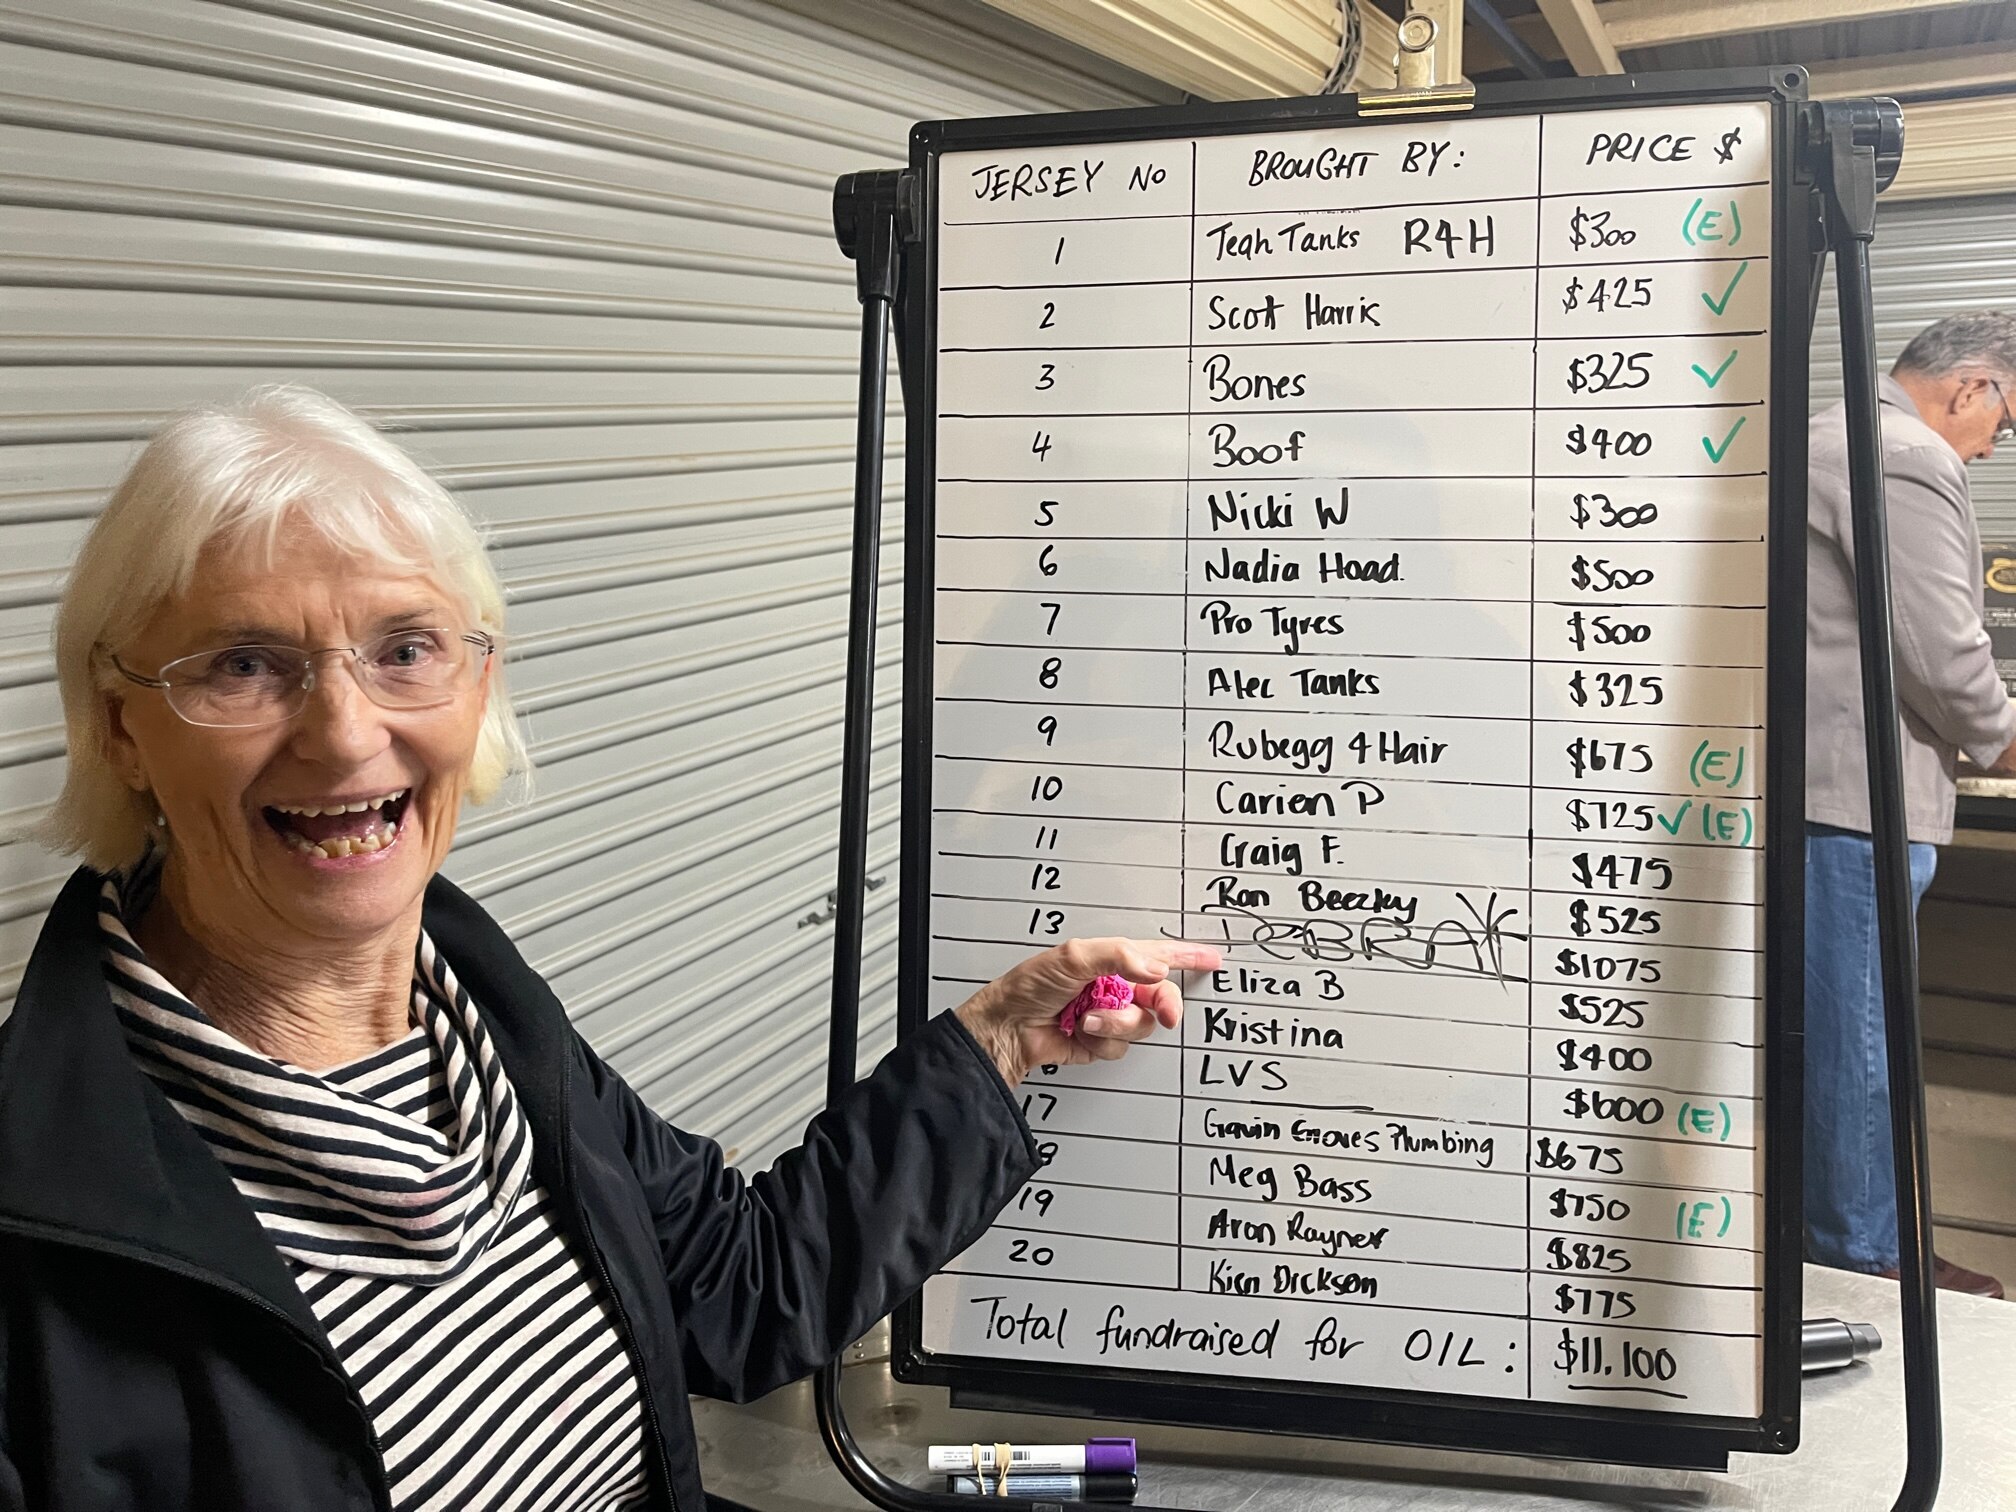 JERSEY No BROUGHT BY: PRICE $
1 Tegh Tanks R4H $300 (E)
2 Scott Harris $425 ✓
3 Bones $325 ✓
4 Boof $400 ✓
5 Nicki W $300
6 Nadia Hoad. $500
7 Pro Tyres $500
8 Alec Tanks $325
9 Rubegg 4 Hair $675 (E)
10 Carien P $725 ✓ (E)
11 Craig F. $475
12 Ron Beezley $525
13 DEBRA $1075
Eliza B $525
Kristina $400
6 LVS $600 (E)
17 Gavin Groves Plumbing $675
8 Meg Bass $750 (E)
19 Aron Rayner $825
20 Kien Dickson $775
Total fundraised for OIL: $11.100